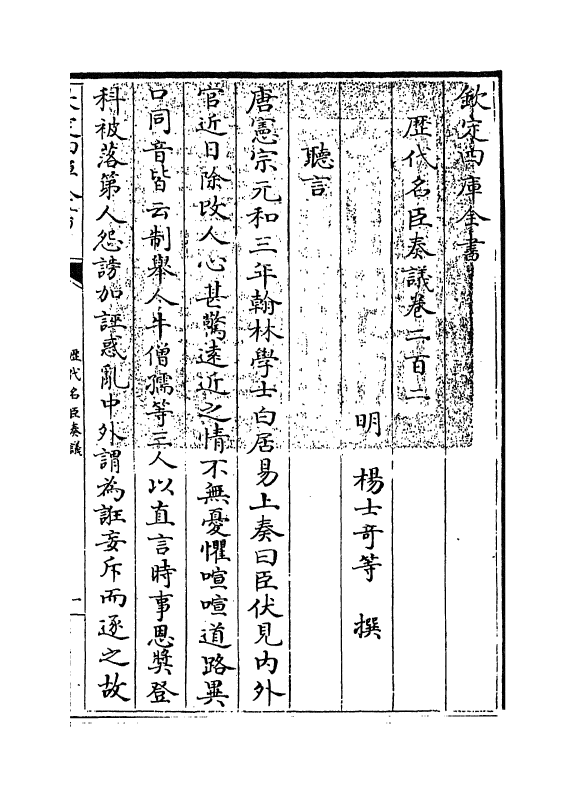 欽定四庫全書
歴代名臣奏議卷二百二
明 楊士竒等 撰
聽言
唐憲宗元和三年翰林學士白居易上奏曰臣伏見内外
官近日除改人心甚驚遠近之情不無憂懼喧喧道路異
口同音皆云制舉人牛僧孺等三人以直言時事恩奬登
科被落第人怨謗加誣惑亂中外謂為誑妄斥而逐之故
歴代名臣奏議
一